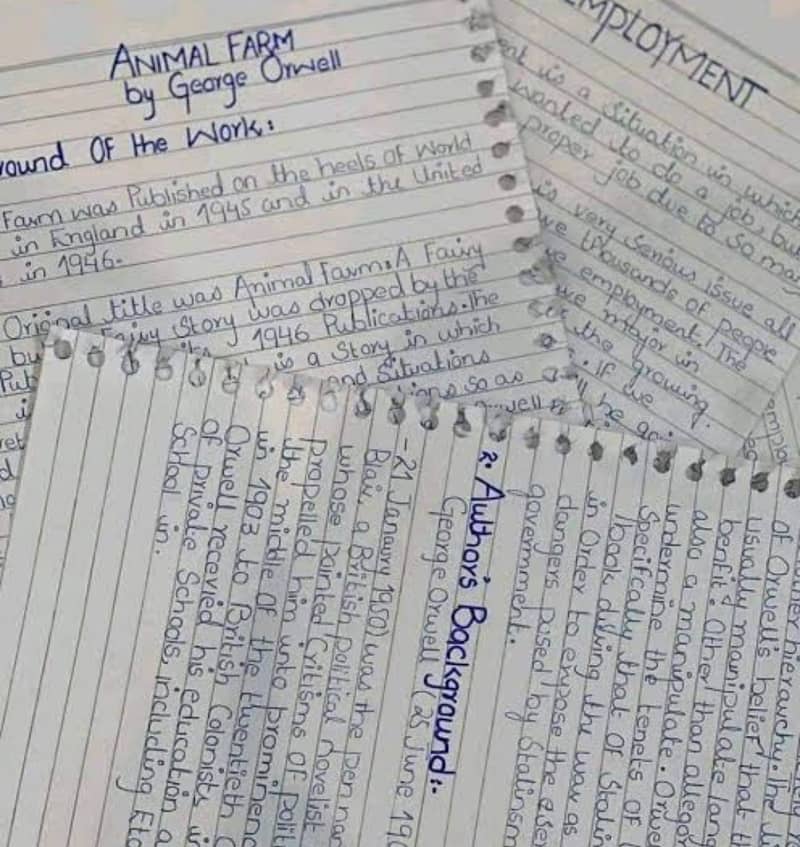 ANIMAL FARM
by George Orwell
Of the Work:
Farm was Published on the heels of World
in England in 1945 and in the United
in 1946.
Original title was Animal Farm: A Fairy
Fairy Story was dropped by the
1946 Publications. The
is a Story in which
and Situations
so as
EMPLOYMENT
is a Situation in which
wanted to do a job, but
proper job due to so many
is very serious issue all
thousands of people
employment. The
major in
the growing.
If we
be
2. Author's Background:.
George Orwell (25 June 190
-21 Janaury 1950) was the pen nam
Blair, a British political novelist
whose painted Critisms of polit
propelled him unto prominenc
the middle of the twentieth
in 1903 to British Colonists in
Orwell recevied his education a
of private Schools, including Eto
School in.
hierarchy. The
of Orwell's belief that th
Usually manipulate lang
benfit. Other than allegor
also a manipulate. Orwe
undermine the tenets of
Specifcally that of Stalin
book during the war as
in Order to expose the
dangers posed by Stalinsm
government.